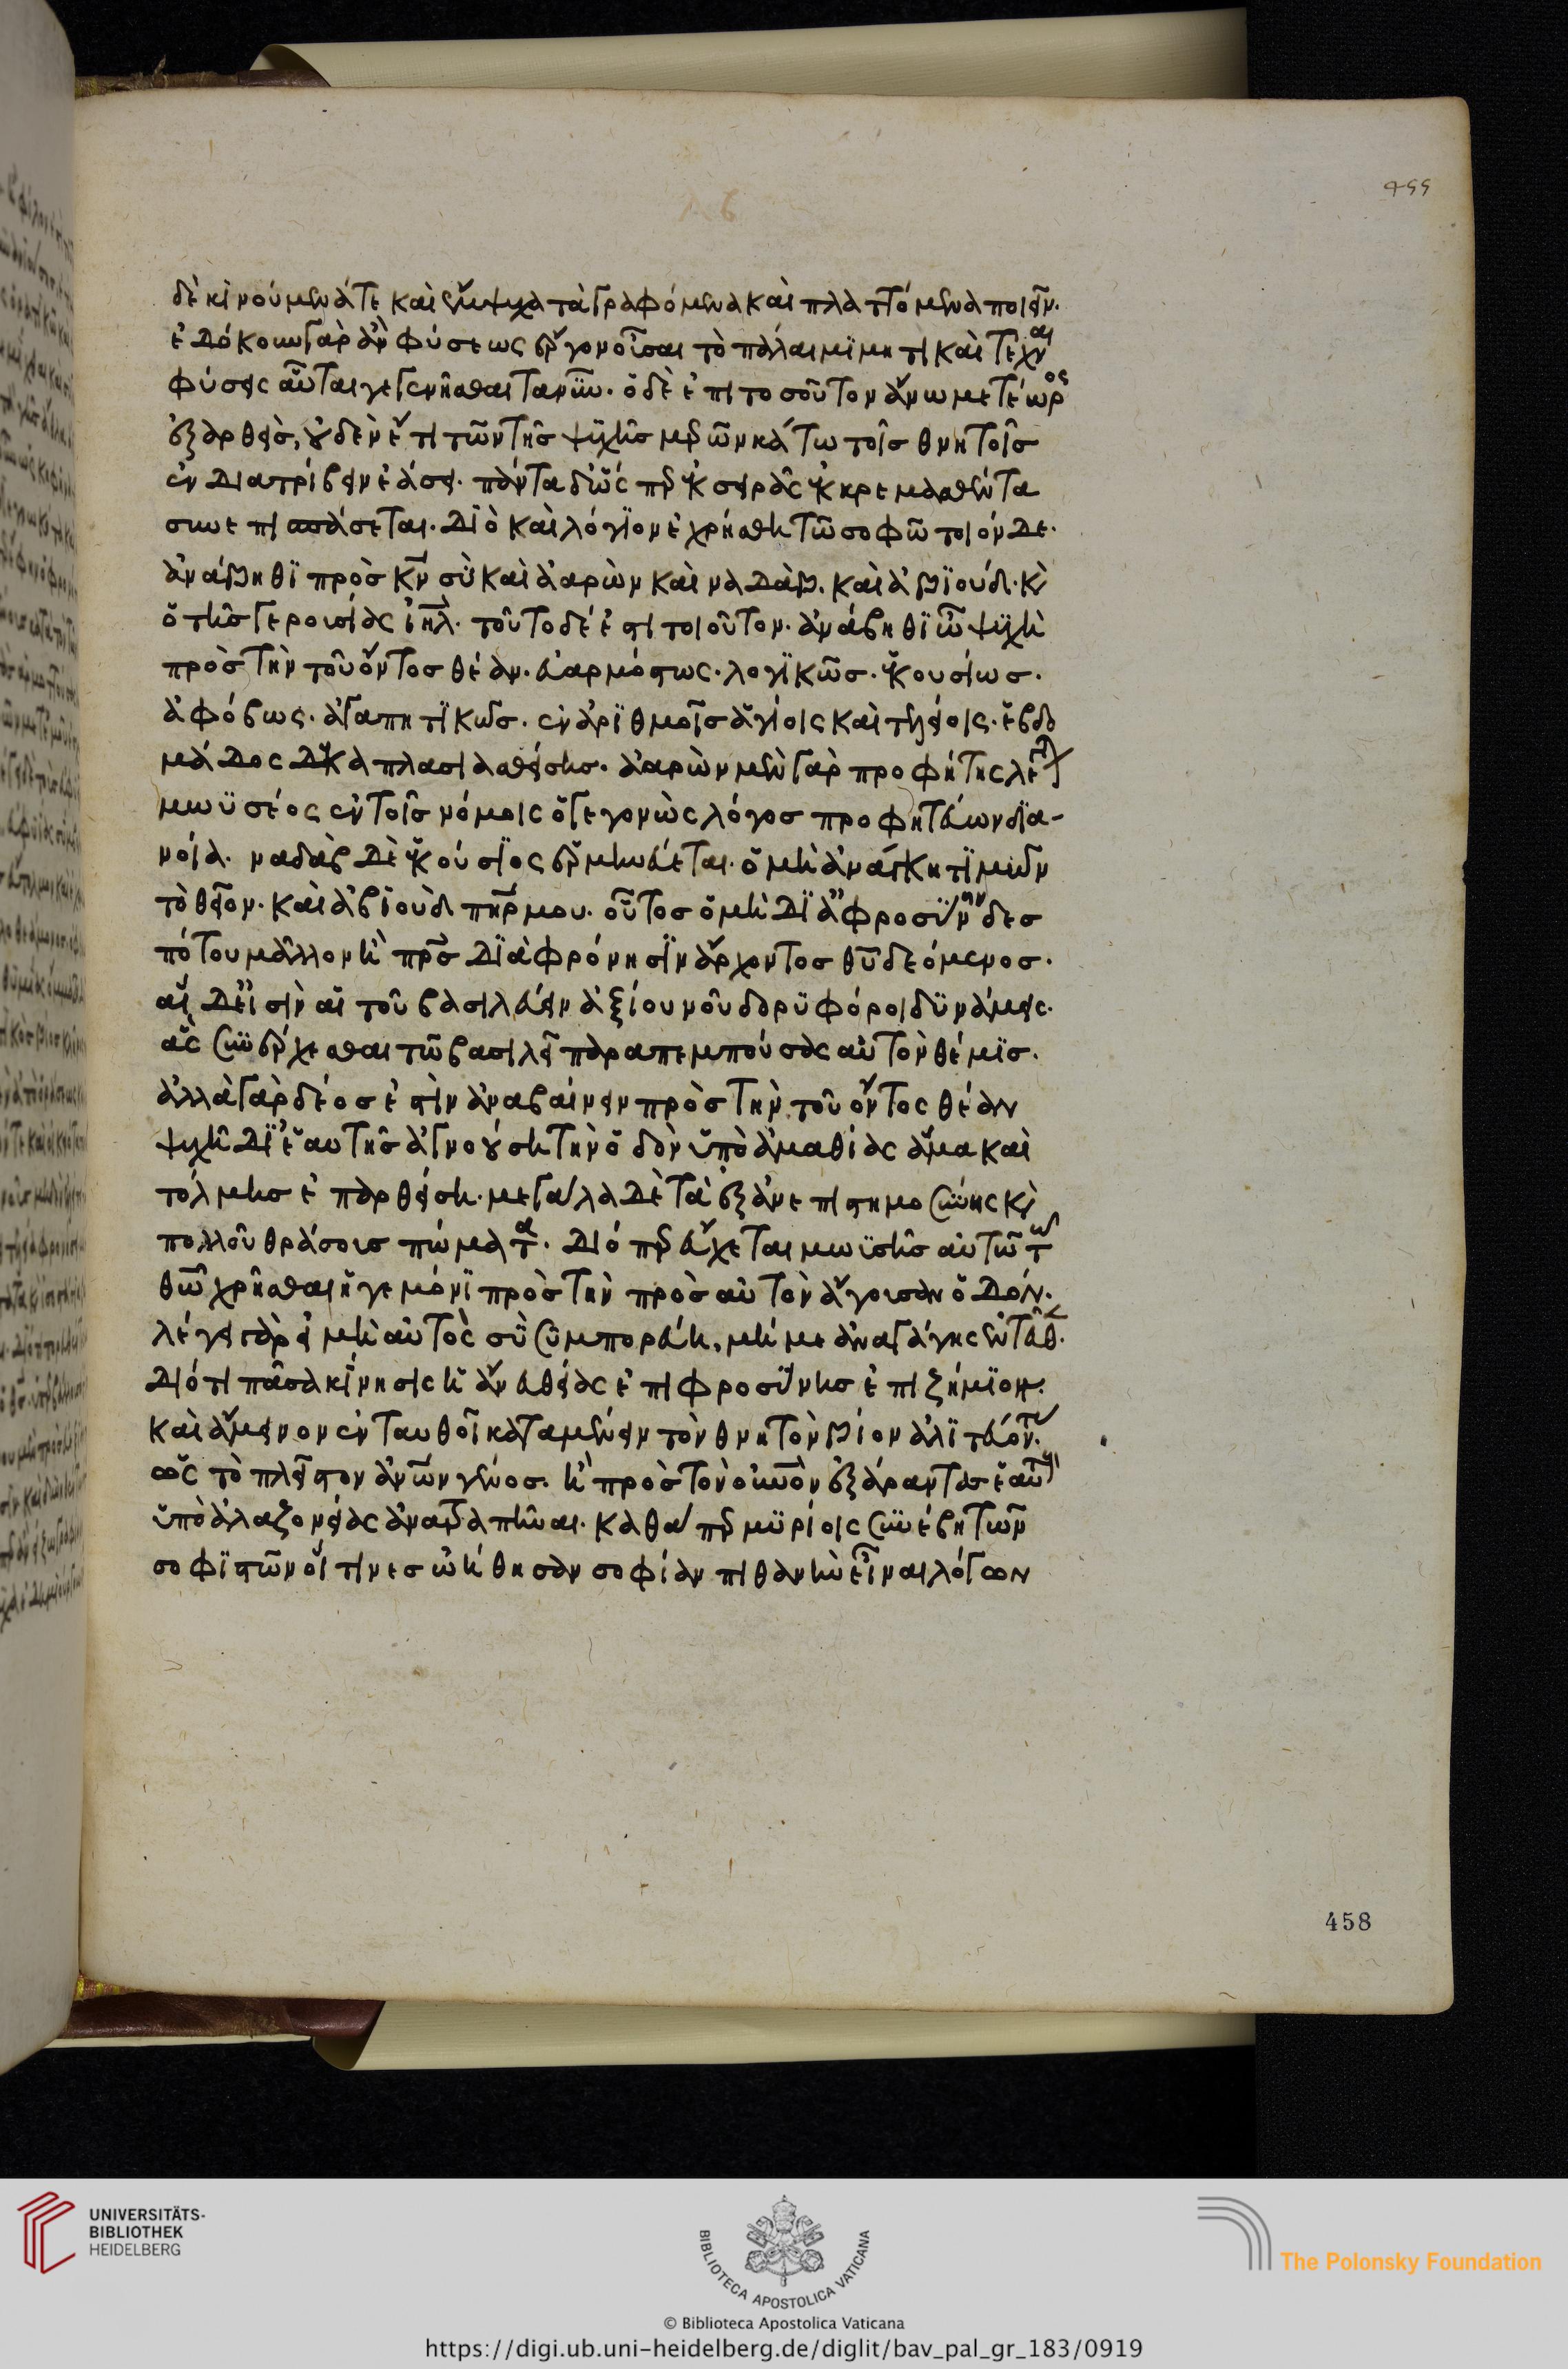 455
δὲ κινούμενά τε καὶ ἔμψυχα τὰ γραφόμενα καὶ πλαττόμενα ποιεῖν.
ἐδόκουν γὰρ ἂν φύσεως ἔργον οὖσαι τὸ πάλαι μίμητι καὶ τέχναι
φύσεις αὗται γεγενῆσθαι τανῦν. ὁ δὲ ἐπὶ τοσοῦτον ἄνω μετέωρος
ἐξαρθεὶς, οὐδὲν ἔτι τῶν τῆς ψυχῆς μερῶν κάτω τοῖς θνητοῖς
ἐνδιατρίβειν ἐάσει. πάντα δ' ὥσπερ ἐκ σειρᾶς ἐκκρεμασθέντα
συνεπισπάσεται. διὸ καὶ λόγιον ἐχρήσθη τῶ σοφῶ τοιόνδε.
ἀνάβηθι πρὸς κν σὺ καὶ ἀαρὼν καὶ ναδὰβ. καὶ ἀβιούδ. καὶ
ὁ τῆς γερουσίας ιηλ. τοῦτο δέ ἐστι τοιοῦτον. ἀνάβηθι ὦ ψυχὴ
πρὸς τὴν τοῦ ὄντος θέαν. εὐαρμόστως. λογικῶς. ἑκουσίως.
ἀφόβως. ἀγαπητικῶς. ἐν ἀριθμοῖς ἁγίοις καὶ τελείοις. ἑβδο
μάδος δεκαπλασιασθείσης. ἀαρὼν μὲν γὰρ προφήτης λέγεται
μωϋσέος ἐν τοῖς νόμοις ὁ γεγονὼς λόγος προφητεύων δια-
νοία. ναδὰβ δὲ ἑκούσιος ἑρμηνεύεται. ὁ μὴ ἀνάγκη τιμῶν
τὸ θεῖον. καὶ ἀβιοὺδ πηρ μου. οὗτος ὁ μὴ δι' ἀφροσύνην δεσ
πότου μᾶλλον ἢ πρς διὰ φρόνησιν ἄρχοντος θυ δεόμενος.
αἱ δ' εἰσὶν αἱ τοῦ βασιλεύειν ἀξίου νοῦ δορυφόροι δυνάμεις.
ἃς συνέρχεσθαι τῶ βασιλεῖ παραπεμπούσας αὐτὸν θέμις.
ἀλλὰ γὰρ δέος ἐστὶν ἀναβαίνειν πρὸς τὴν τοῦ ὄντος θέαν
ψυχῆ δι' ἑαυτῆς ἀγνοούση τὴν ὁδὸν ὑπὸ ἀμαθίας ἅμα καὶ
τόλμης ἐπαρθείση. μεγάλα δὲ τὰ ἐξ ἀνεπιστημοσύνης καὶ
πολλοῦ θράσους πώματα. διόπερ εὔχεται μωϋσῆς αὐτῶ τῶ
θῶ χρῆσθαι ἡγεμόνι πρὸς τὴν πρὸς αὐτὸν ἄγουσαν ὁδόν.
λέγει γὰρ εἰ μὴ αὐτὸς σὺ συμπορεύη, μή με ἀναγάγης ἐνταῦθ.
διότι πᾶσα κίνησις ἡ ἄνευ θείας ἐπιφροσύνης ἐπιζήμιον.
καὶ ἄμεινον ἐνταυθοῖ καταμένειν τὸν θνητὸν βίον ἀλιτεύοντας.
ὡς τὸ πλεῖστον ἀνων γένος. ἢ πρὸς τὸν οὐνον ἐξάραντας ἑαυτοὺς
ὑπὸ ἀλαζονείας ἀνατραπῆναι. καθάπερ μυρίοις συνέβη τῶν
σοφιστῶν οἵτινες ὠήθησαν σοφίαν πιθανὴν εἶναι λόγων
458
UNIVERSITÄTS-
BIBLIOTHEK
HEIDELBERG
BIBLIOTECA APOSTOLICA VATICANA
The Polonsky Foundation
© Biblioteca Apostolica Vaticana
https://digi.ub.uni-heidelberg.de/diglit/bav_pal_gr_183/0919